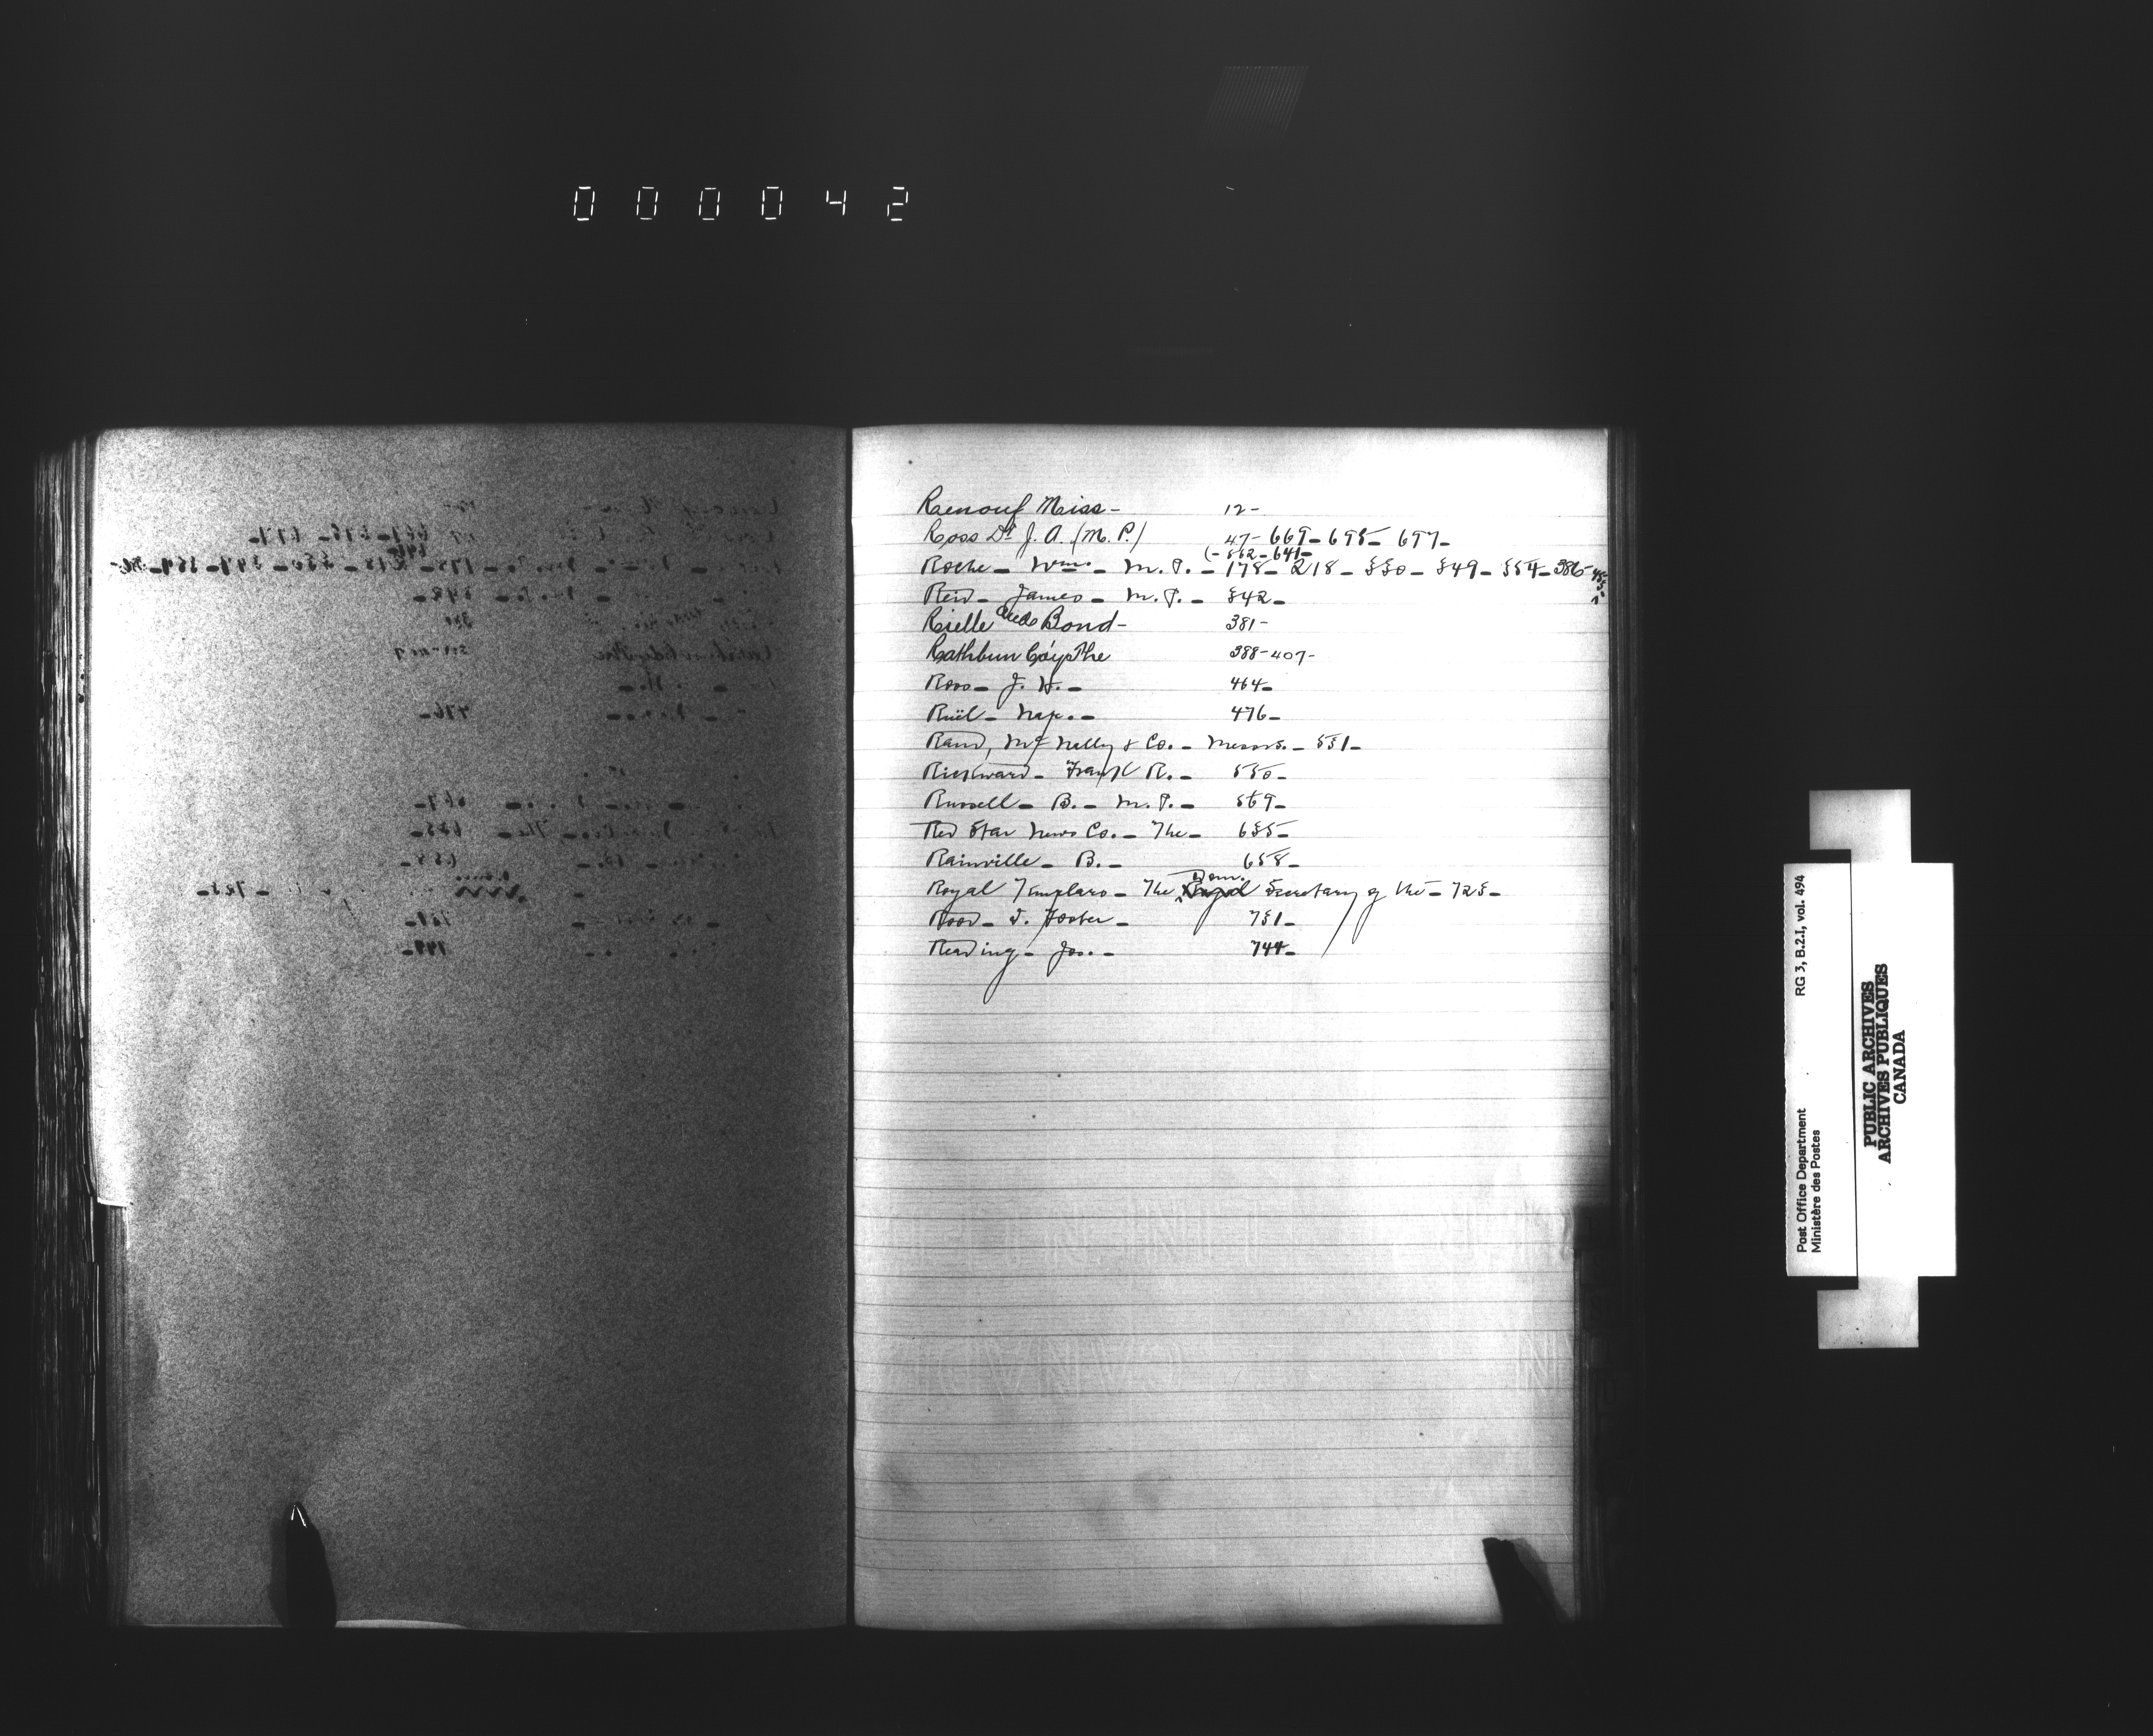 000042
Renouf Miss - 12-
Ross Dr J. A. (M.P.) 47- 669- 695- 697-
(- 562- 641-
Roche- Wm.- M.P.- 178- 218- 330- 349- 354- 386-
Reid- James- M.P.- 342-
Rielle and Bond- 381-
Rathbun Co'y The 388-407-
Ross- J. H.- 464-
Ruël- Nap.- 476-
Rand, McNally & Co.- Messrs.- 531-
Rickward- Frank R.- 550-
Russell- B.- M.P.- 569-
Red Star News Co.- The- 635-
Rainville- B.- 658-
Dom.
Royal Templars- The Secretary of the- 725-
Rood- J. Foster- 731-
Reading- Jos.- 744-
RG 3, B.2.I, vol. 494
Post Office Department
Ministère des Postes
PUBLIC ARCHIVES
ARCHIVES PUBLIQUES
CANADA